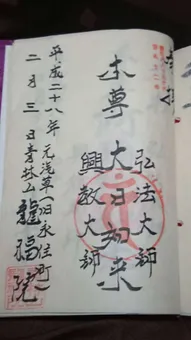 弘法大師
本尊 大日如来
興教大師
平成二十八年 元浅草(旧永住町)
二月三日 青林山 龍福院